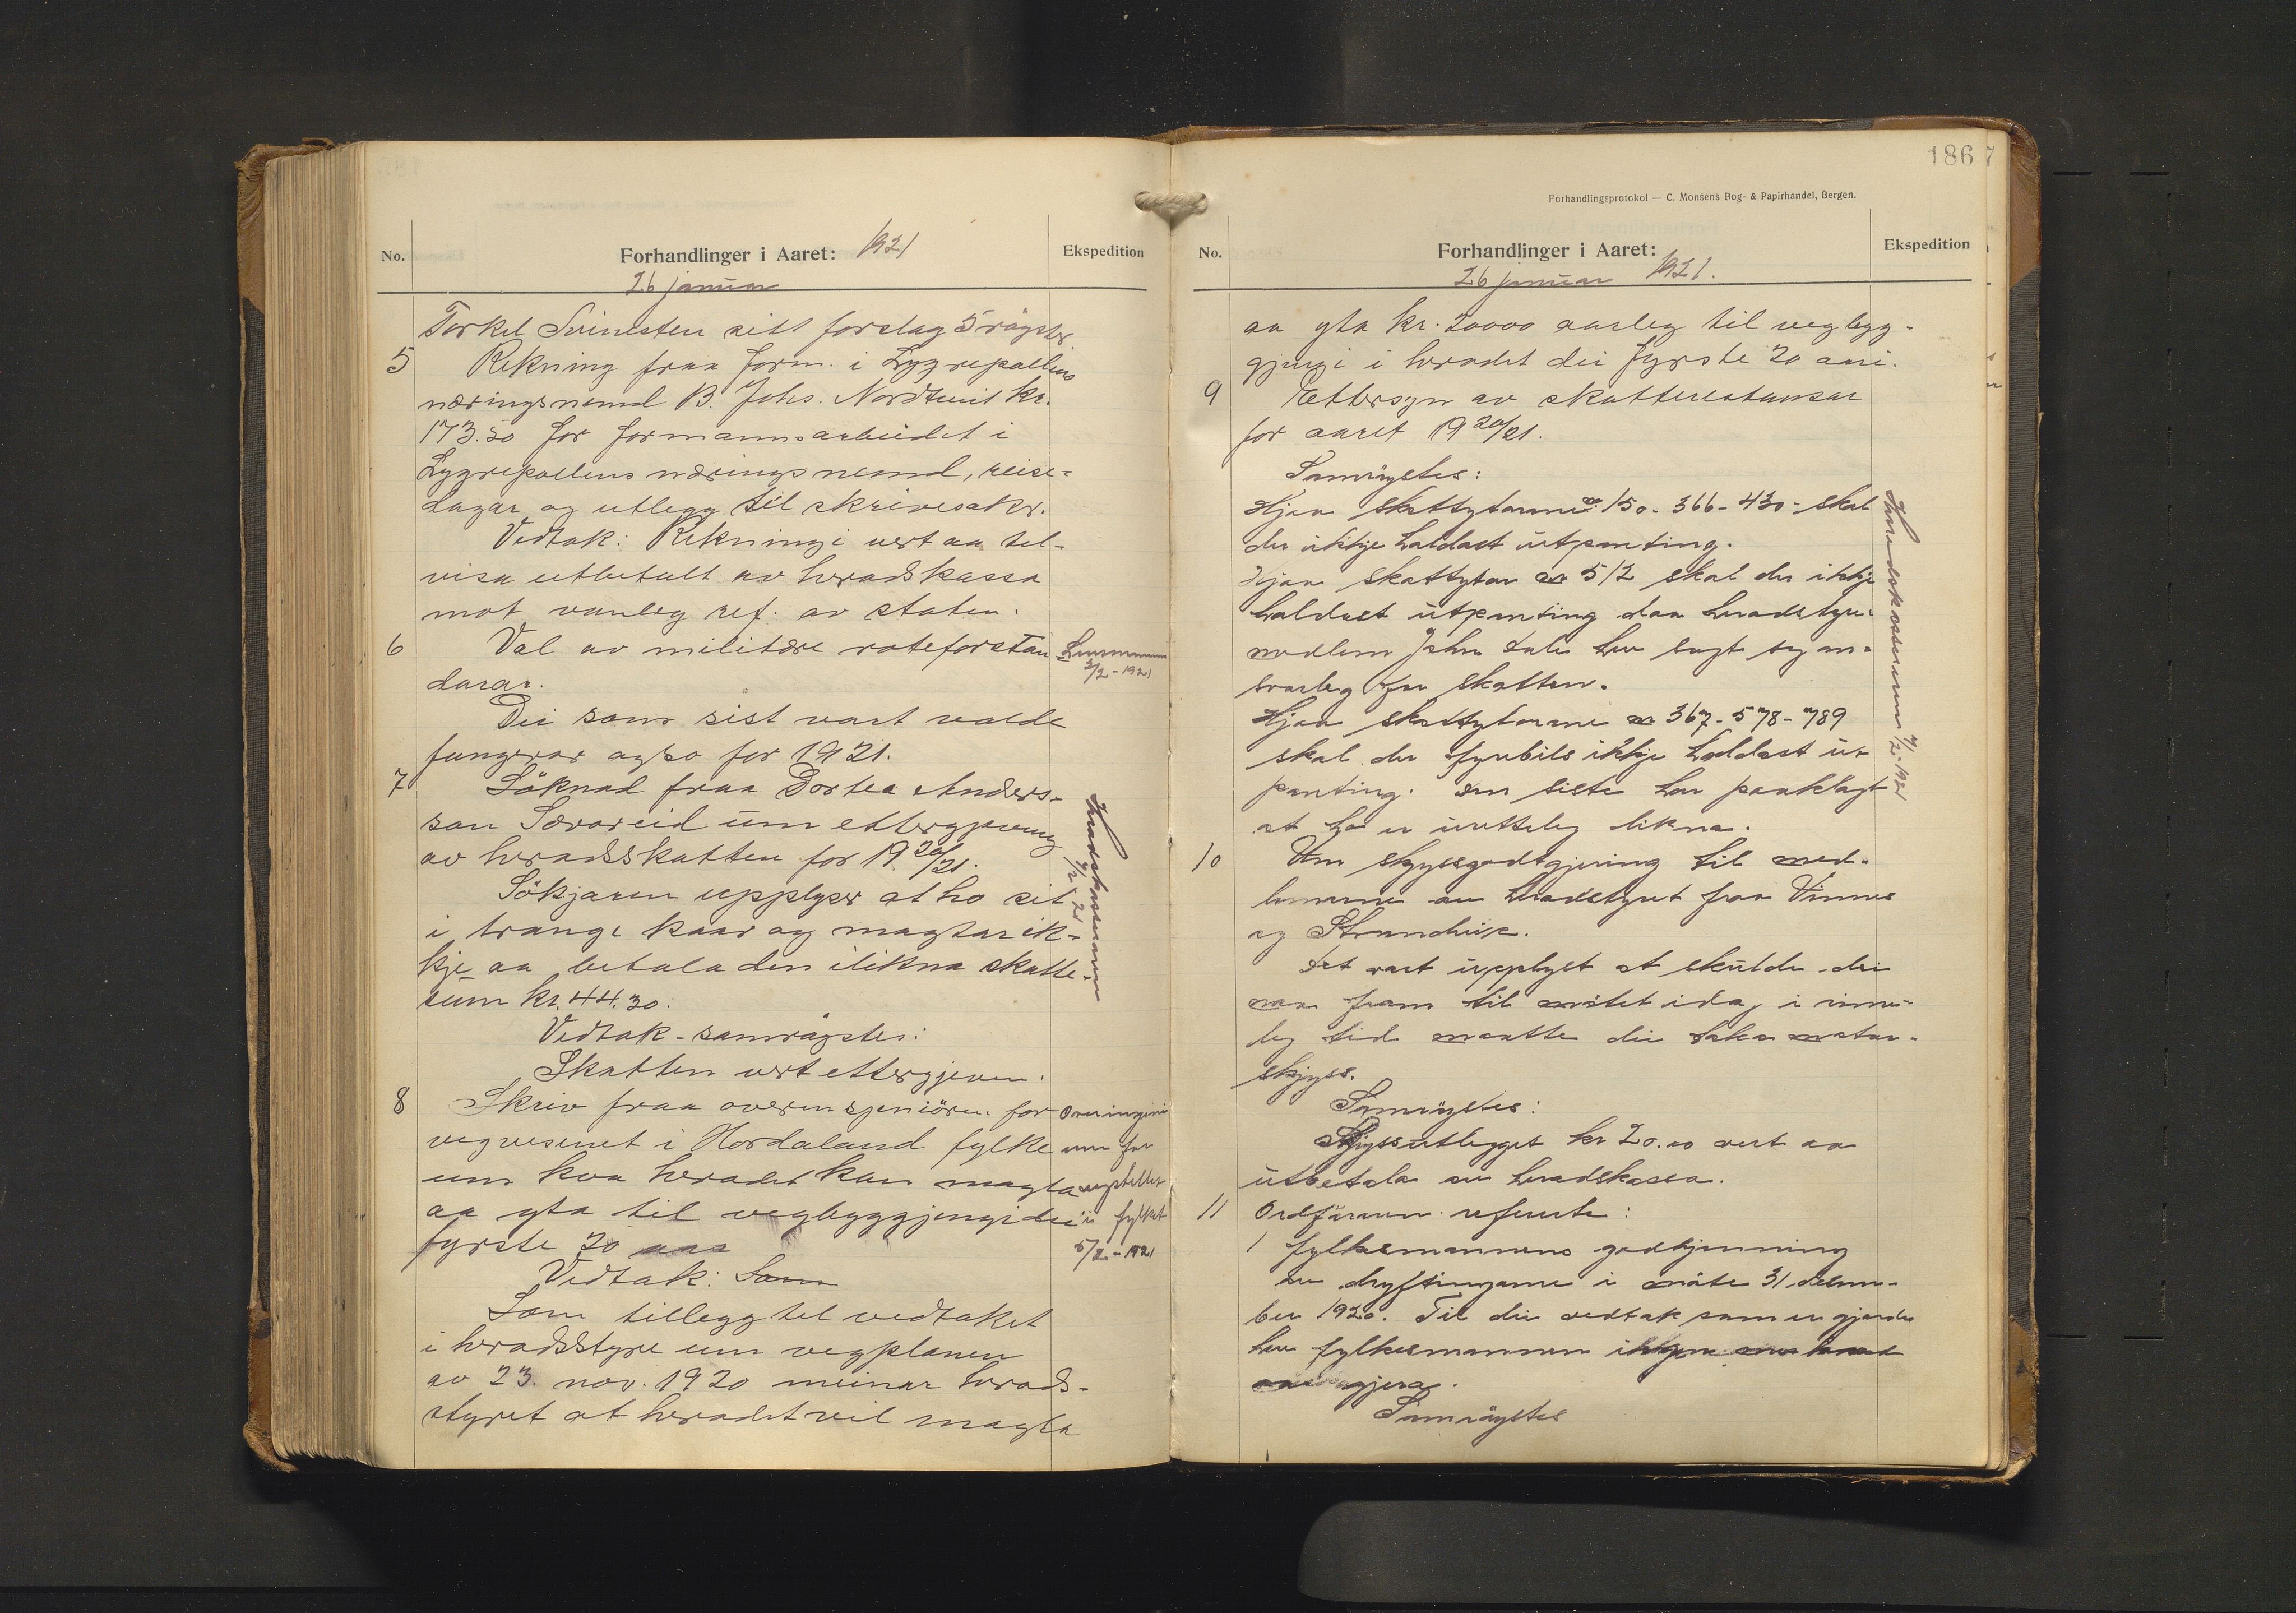 No.
Forhandlinger i Aaret: 1921
Ekspedition
26 januar
Torkel Svinsten sitt forslag 5 røyster
5 Rekning fraa form. i Lygrepollens
næringsnemd B. Johs. Nordtveit kr.
173.50 for formannsarbeidet i
Lygrepollens næringsnemd, reise-
dagar og utlegg til skrivesaker.
Vedtak: Rekningi vert aa til-
visa utbetalt av heradskassa
mot vanleg ref. av staten.
6 Val av militære roteforstan
darar.
Lensmannen
3/2-1921
Dei som sist vart valde
fungerar ogso for 1921.
7 Söknad fraa Dortea Anders-
son Sævareid um ettergjeving
av heradsskatten for 1920/21.
Heradskasseraren
4/2-21
Sökjaren upplyser at ho sit
i trange kaar og magtar ik-
kje aa betala den ilikna skatte-
sum kr. 44.30.
Vedtak - samrøystes:
Skatten vert ettergjeven.
8 Skriv fraa overingeniören for
vegvesenet i Hordaland fylke
um kva heradet kan magta
aa yta til vegbyggjingi dei
fyrste 20 aar
Overingeni
5/2-1921
Vedtak: Som
Som tillegg til vedtaket
i heradsstyre um vegplanen
av 23. nov. 1920 meinar herads-
styret at heradet vil magta
186
7
Forhandlingsprotokol — C. Monsens Bog- & Papirhandel, Bergen.
No.
Forhandlinger i Aaret:
Ekspedition
26 januar 1921.
aa yta kr. 20000 aarleg til vegbygg-
gjingi i heradet dei fyrste 20 aari.
9 Ettersyn av skatterestansar
for aaret 1920/21.
Samrøystes:
Hjaa skattytarane nr 150 - 366 - 430 - skal
der ikkje haldast utpanting.
Hjaa skattytar nr 512 skal der ikkje
haldast utpanting daa heradstyre-
medlem John Dale hev sagt seg an-
svarleg for skatten.
Hjaa skattytarane nr 367 - 578 - 789
skal der fyrebils ikkje haldast ut
panting. Den siste har paaklagt
at ho er uretteleg likna.
Heradskasseraren 4/2-1921
10 Um skyssgodtgjering til med-
lemene av heradstyret fraa Vinnes
og Strandvik.
Det vart upplyst at skulde dei
naa fram til møtet idag i rime-
leg tid maatte dei taka motor-
skyss.
Samrøystes:
Skyssutlegget kr 20.00 vert aa
utbetala av heradskassa.
11 Ordföraren referерte:
1 Fylkesmannens godkjenning
av dryftingane i møte 31 desem-
ber 1920. Til dei vedtak som er gjorde
hev fylkesmannen
gjera.
Samrøystes